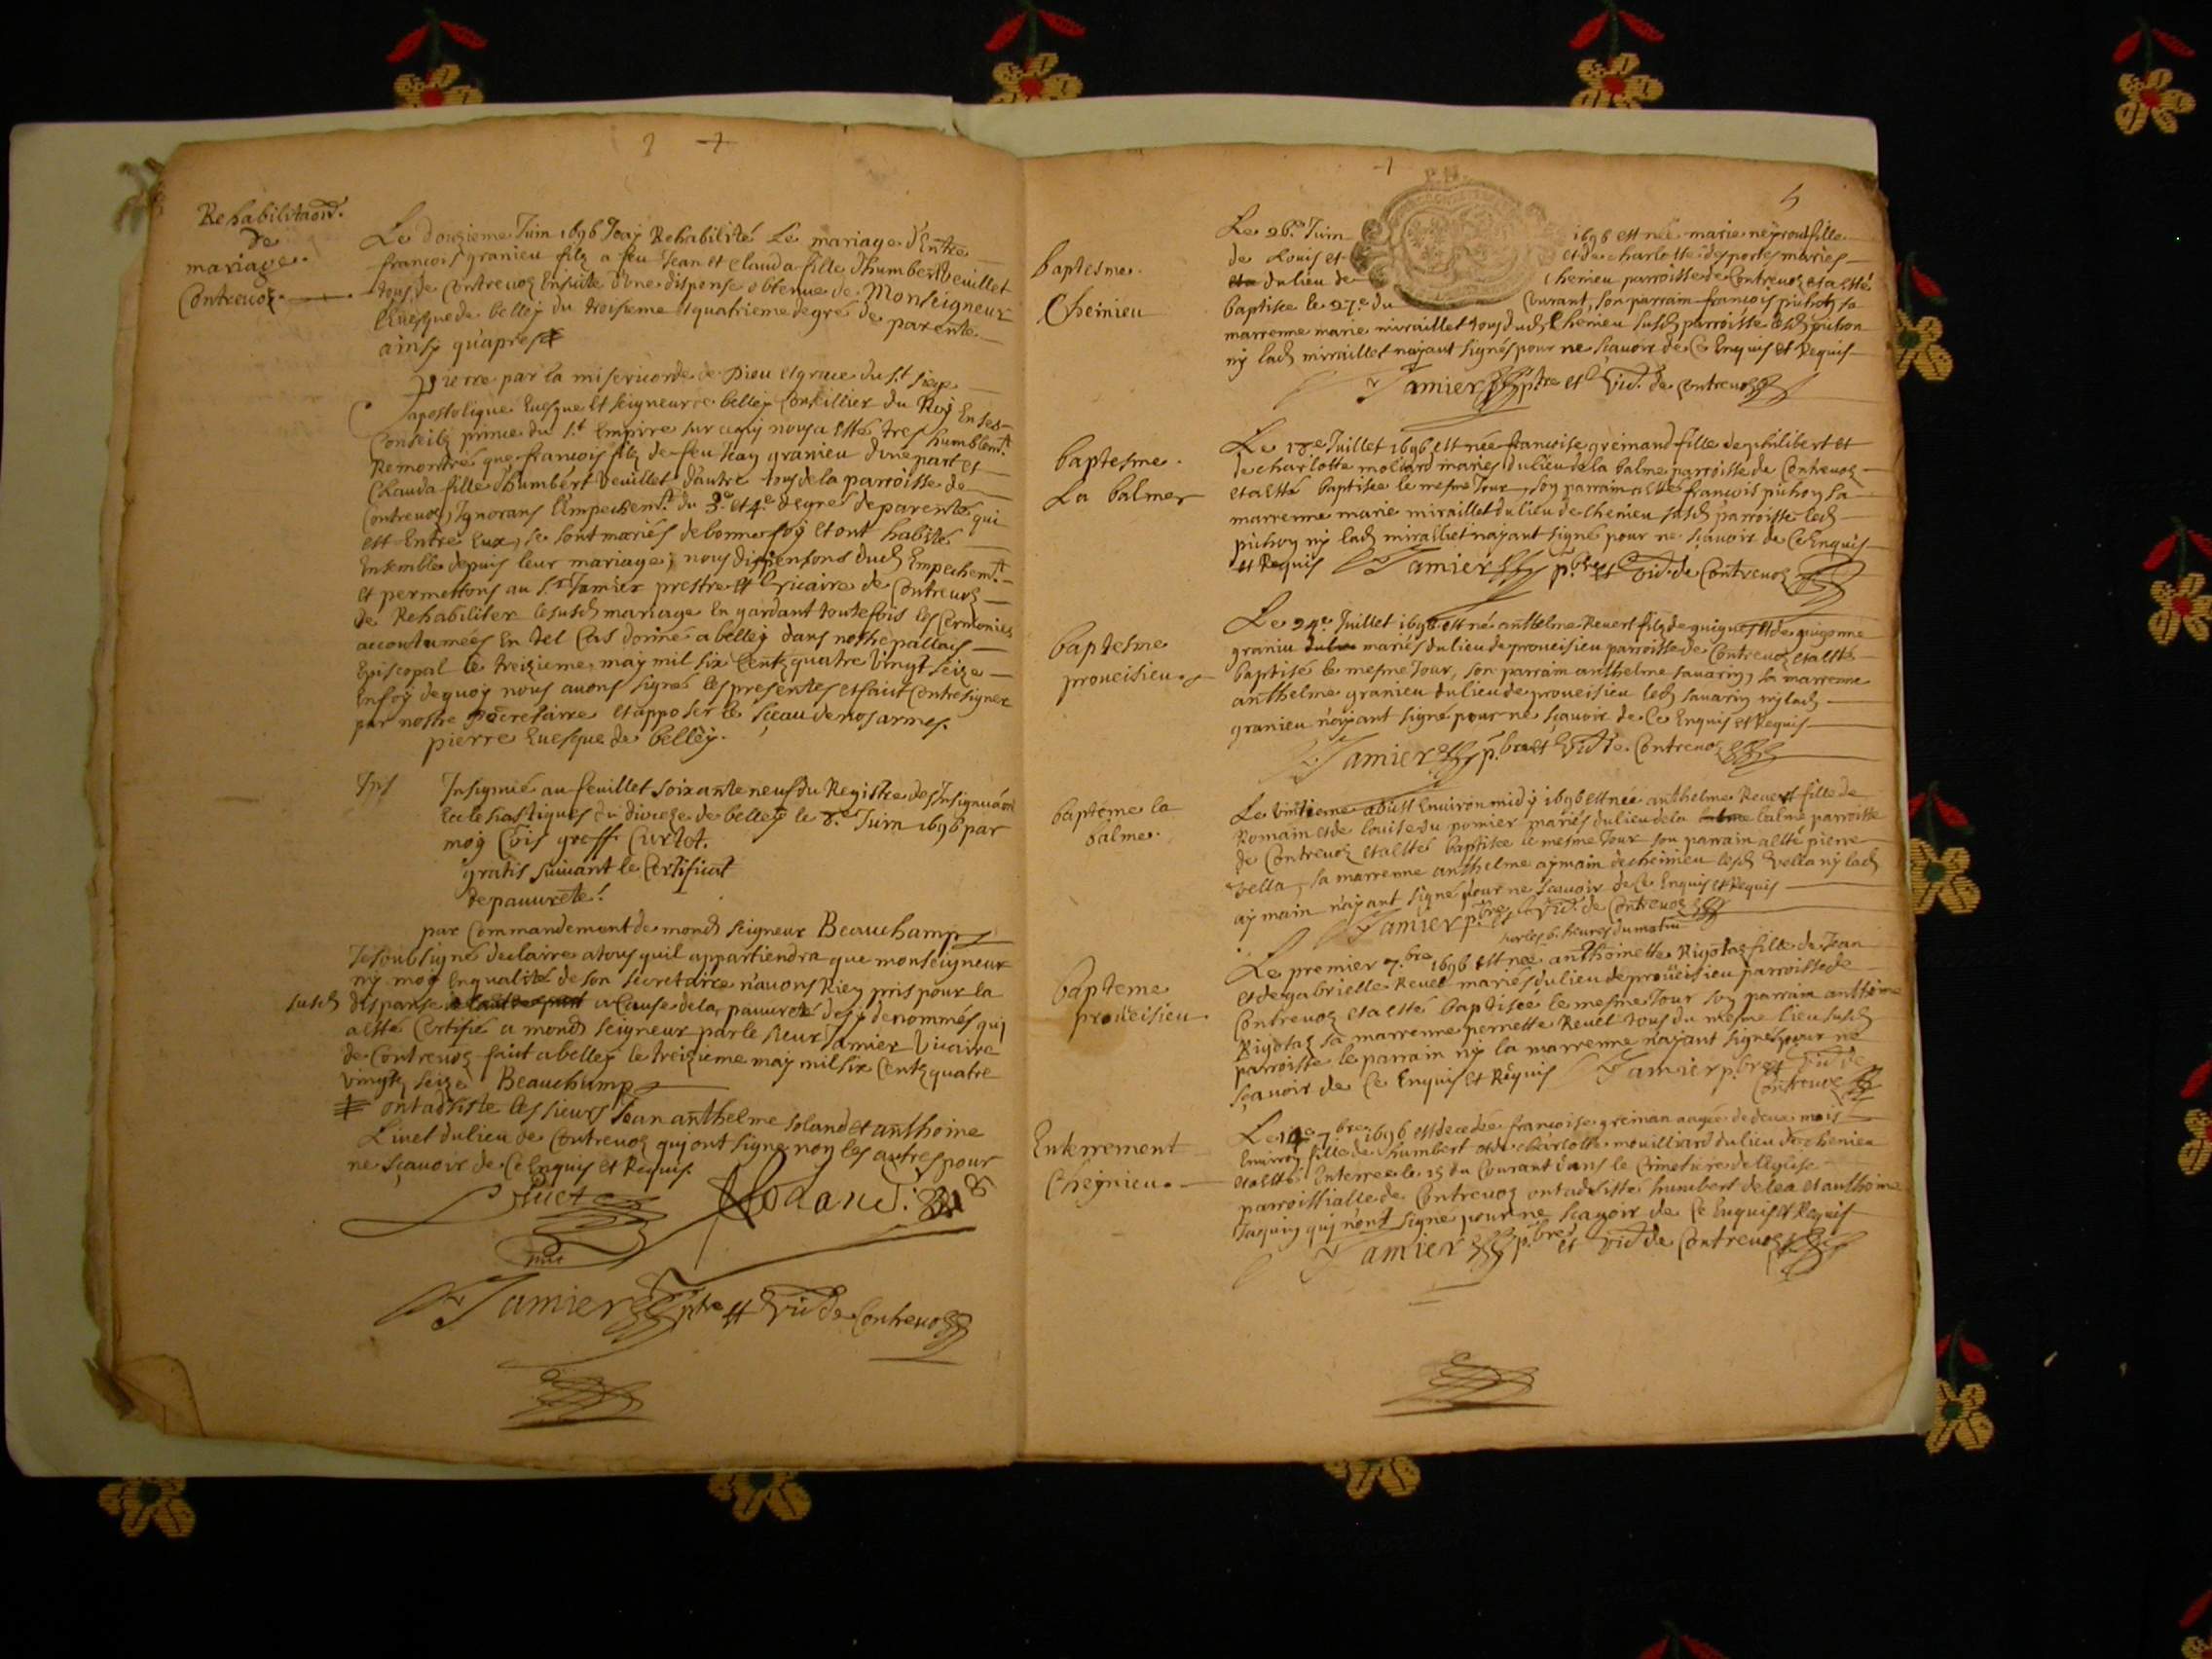 Rehabilitaon.
de
mariage.
Contreuoz.
Le douzieme Juin 1696 Jay Rehabilité Le mariage d'Entre
francois granieu filz a feu Jean et Clauda fille d'humbert veuillet
tous de Contreuoz Ensuite d'une dispense obtenue de Monseigneur
l'Euesque de belley du troisieme et quatrieme degré de parenté
ainsy qu'apres
pierre par la misericorde de Dieu et grace du s.t siege
apostolique Euesque et seigneur de belley Conseillier du Roy En ses
Conseilz prince du s.t Empire sur nous a esté tres humblem.t
Remontré que francois filz de feu Jean granieu d'une part et
Clauda fille d'humbert veuillet d'autre tous de la parroisse de
Contreuoz, Ignorans l'Empechem.t du 3.e et 4.e degré de parenté qui
est Entre Eux, se sont mariés de bonne foy et ont habité
Ensemble depuis leur mariage; nous dispensons dud Empechem.t
et permettons au s.r Jamier prestre et vicaire de Contreuoz
de Rehabiliter le susd mariage En gardant toutefois les Ceremonies
accoutumées En tel Cas donné a belley dans nostre pallais
Episcopal le treizieme may mil six Centz quatre vingt seize
Enfoy dequoy nous auons signé les presentes et fait Contresigner
par nostre secretaire et apposer le sceau de nos armes.
pierre Euesque de belley.
Ins Insigniué au feuillet soixante neuf du Registre des
Ecclesiastiques du diocese de belley le 8.e Juin 1696 par
moy greff. Curtet.
gratis suiuant le Certificat
de pauureté.
par Commandement de mond seigneur Beauchamp
Je soubsigné declaire a tous quil appartiendra que monseigneur
ny moy En qualité de son secretaire n'auons Rien pris pour la
susd dispanse a Cause de la pauureté des denommés qui
a esté Certifié a mond seigneur par le sieur Jamier vicaire
de Contreuoz fait a belley le treizieme may mil six Centz quatre
vingtz seize Beauchamp
ont adsisté les sieurs Jean anthelme soland et anthoine
Liuet du lieu de Contreuoz qui ont signé non les autres pour
ne scauoir de Ce Enquis et Requis.
Jamier ptre et vic de Contreuoz
5
baptesme.
Cheinieu
Le 26.e Juin 1696 est née marie neyroud fille
de Louis et et de charlotte desportes mariés
du lieu de Cheinieu parroisse de Contreuoz et a esté
baptisée le 27.e du Courant, son parrain francois pichon sa
marrenne marie miraillet tous dud Cheinieu susd parroisse led pichon
ny lad miraillet n'ayant signés pour ne scauoir de Ce Enquis et Requis
Jamier ptre et vic. de Contreuoz
baptesme.
La balme
Le Juillet 1696 est née francoise greinand fille de philibert et
de charlotte moliard mariés du lieu de la balme parroisse de Contreuoz
et a esté baptisée le mesme Jour, son parrain a esté francois pichon sa
marrenne marie miraillet du lieu de cheinieu susd parroisse led
pichon ny lad miralliet n'ayant signé pour ne scauoir de Ce Enquis
et Requis Jamier p.bre et vic. de Contreuoz
baptesme
proueisieu.
Le 24.e Juillet 1696 est né anthelme Reuert filz de guigue et de guigonne
graniu mariés du lieu de proueisieu parroisse de Contreuoz et a esté
baptisé le mesme Jour, son parrain anthelme sauarin, sa marrenne
anthelme granieu du lieu de proueisieu led sauarin ny lad
granieu n'ayant signé pour ne scauoir de Ce Enquis et Requis
Jamier p.bre et vic de Contreuoz
baptême la
balme.
Le vintieme aoust Enuiron midy 1696 est née anthelme Reuert fille de
Romain et de louise du pomier mariés du lieu de la balme parroisse
de Contreuoz et a esté baptisée le mesme Jour son parrain a esté pierre
vella, sa marrenne anthelme aymain de cheinieu led vella ny lad
aymain n'ayant signé pour ne scauoir de Ce Enquis et Requis
Jamier p.bre et vic. de Contreuoz
sur les 6. heures du matin
bapteme
proueisieu.
Le premier 7.bre 1696 est née anthoinette Rigotaz fille de Jean
et de gabrielle Reuel mariés du lieu de proueisieu parroisse de
Contreuoz et a esté baptisée le mesme Jour son parrain anthoine
Rigotaz sa marrenne pernette Reuel tous du mesme lieu susd
parroisse le parrain ny la marrenne n'ayant signés pour ne
scauoir de Ce Enquis et Requis Jamier p.bre et vic de
Contreuoz
Enterrement
Cheinieu.
Le 14.e 7.bre 1696 est decedée francoise greinan aagée de deux mois
Enuiron fille de humbert et de charlotte mouilliard du lieu de chenieu
et a esté Enterrée le 15 du Courant dans le Cimetiere de l'Eglise
parroissialle de Contreuoz ont adsisté humbert delea et anthoine
Jaquin qui n'ont signé pour ne scauoir de Ce Enquis et Requis
Jamier p.bre et vic de Contreuoz